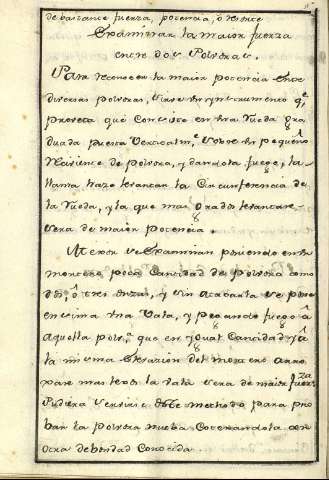 de bastante fuerza, potencia, ô
Examinar la maior fuerza
entre dos Polvoras.
Para reconocer la maior potencia entre
diversas polvoras, sirve un ynstrumento
que consiste en una rueda gra
duada puesta sobre un pequeño
de polvora, y dandole fuego, la
llama haze levantar la Circunferencia de
la rueda, y la que mas grados levantare
sera de maior potencia.
se examinan poniendo en un
mortero poca Cantidad de polvora como
dos, ô tres onzas, y sin se pone
encima una bala, y pegando fuego â
aquella que en ygual Cantidad, y â
la misma elevazion del mortero arro
jare mas lexos la bala sera de maior fuerza
Pudiera servirse este methodo para pro
bar la polvora nueba Cotexandola con
otra de bondad Conocida.